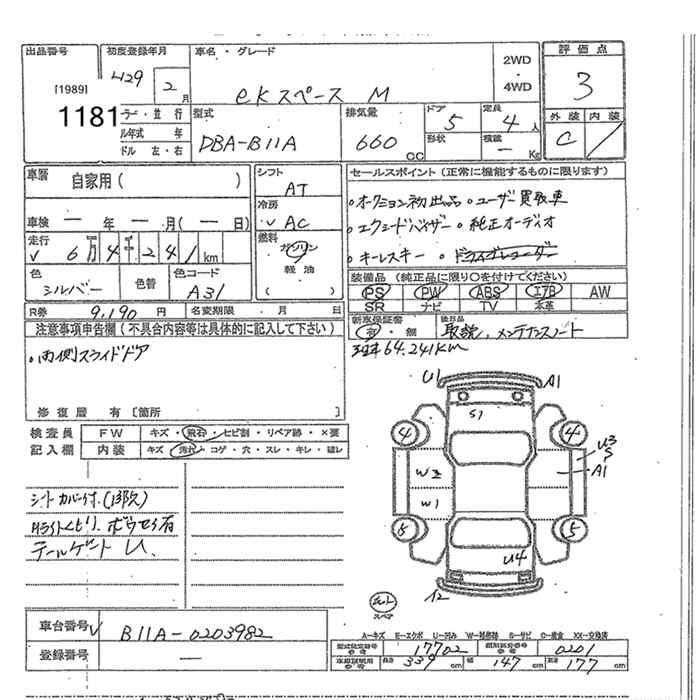 出品番号 初度登録年月 車名・グレード 評価点
[1989] H29 2月 ekスペース M 2WD・4WD 3
1181
ラー・並行 型式 排気量 ドア 定員 外装 内装
ル年式 年 DBA-B11A 660CC 5 4人 C
ドル 左・右 形状 積載 Kg
車暦 自家用( ) シフト AT セールスポイント(正常に機能するものに限ります)
冷房 AC 。オークション初出品 。ユーザー買取車
車検 ー年ー月(ー日) 。エクシードバイザー 。純正オーディオ
走行 6万4千241km 燃料 ガソリン 軽油 ( ) 。キーレスキー
色 シルバー 色替 色コード A31 装備品(純正品に限り○を付けてください)
PS PW ABS エアB AW
SR ナビ TV 本革
R券 9,190円 名変期限 ・月 日
新車保証書 有・無 後日品 取説、メンテナンスノート
注意事項申告欄(不具合内容等は具体的に記入して下さい)
64.241Km
・両側スライドドア
修復歴 有〔箇所 〕
検査員 FW キズ・飛石・ヒビ割・リペア跡・×要
記入欄 内装 キズ・汚れ・コゲ・穴・スレ・キレ・破レ
U1 A1
S1
4 4
U3
S
A1
W2
W1
6 5
U4
シートカバー付.
テールゲート U
スペア
車台番号 B11A-0203982
登録番号 ー
A-キズ E-エクボ U-凹み W-補修跡 S-サビ C-腐食 XX-交換済
型式指定番号 参考 17702 類別区分番号 参考 0201
車庫証明用 参考 長さ 339cm 幅 147cm 高さ 177cm